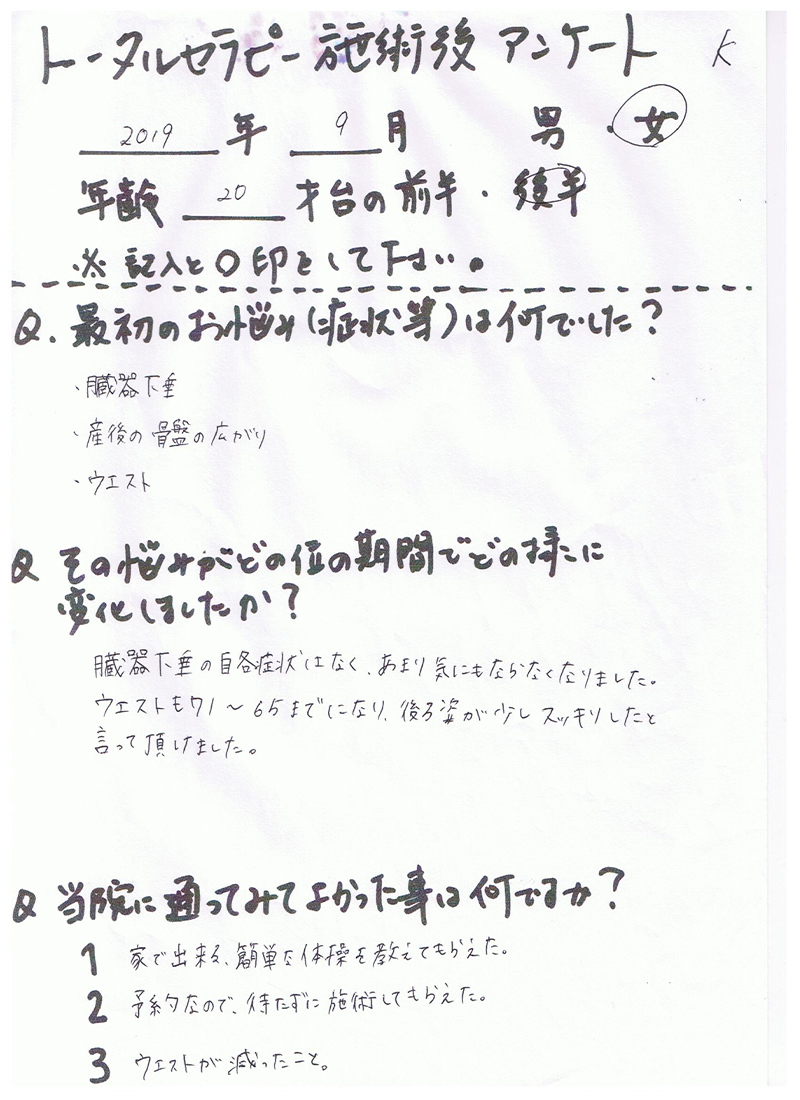 トータルセラピー施術後 アンケート K
2019 年 9 月 男・女
年齢 20 才台の前半・後半
※ 記入と○印をして下さい。
Q. 最初のお悩み(症状等)は何でした?
・臓器下垂
・産後の骨盤の広がり
・ウエスト
Q その悩みがどの位の期間でどの様に
変化しましたか?
臓器下垂の自各症状はなく、あまり気にもならなくなりました。
ウエストも71~65までになり、後ろ姿が少しスッキリしたと
言って頂けました。
Q 当院に通ってみてよかった事は何ですか?
1 家で出来る、簡単な体操を教えてもらえた。
2 予約なので、待たずに施術してもらえた。
3 ウエストが減ったこと。